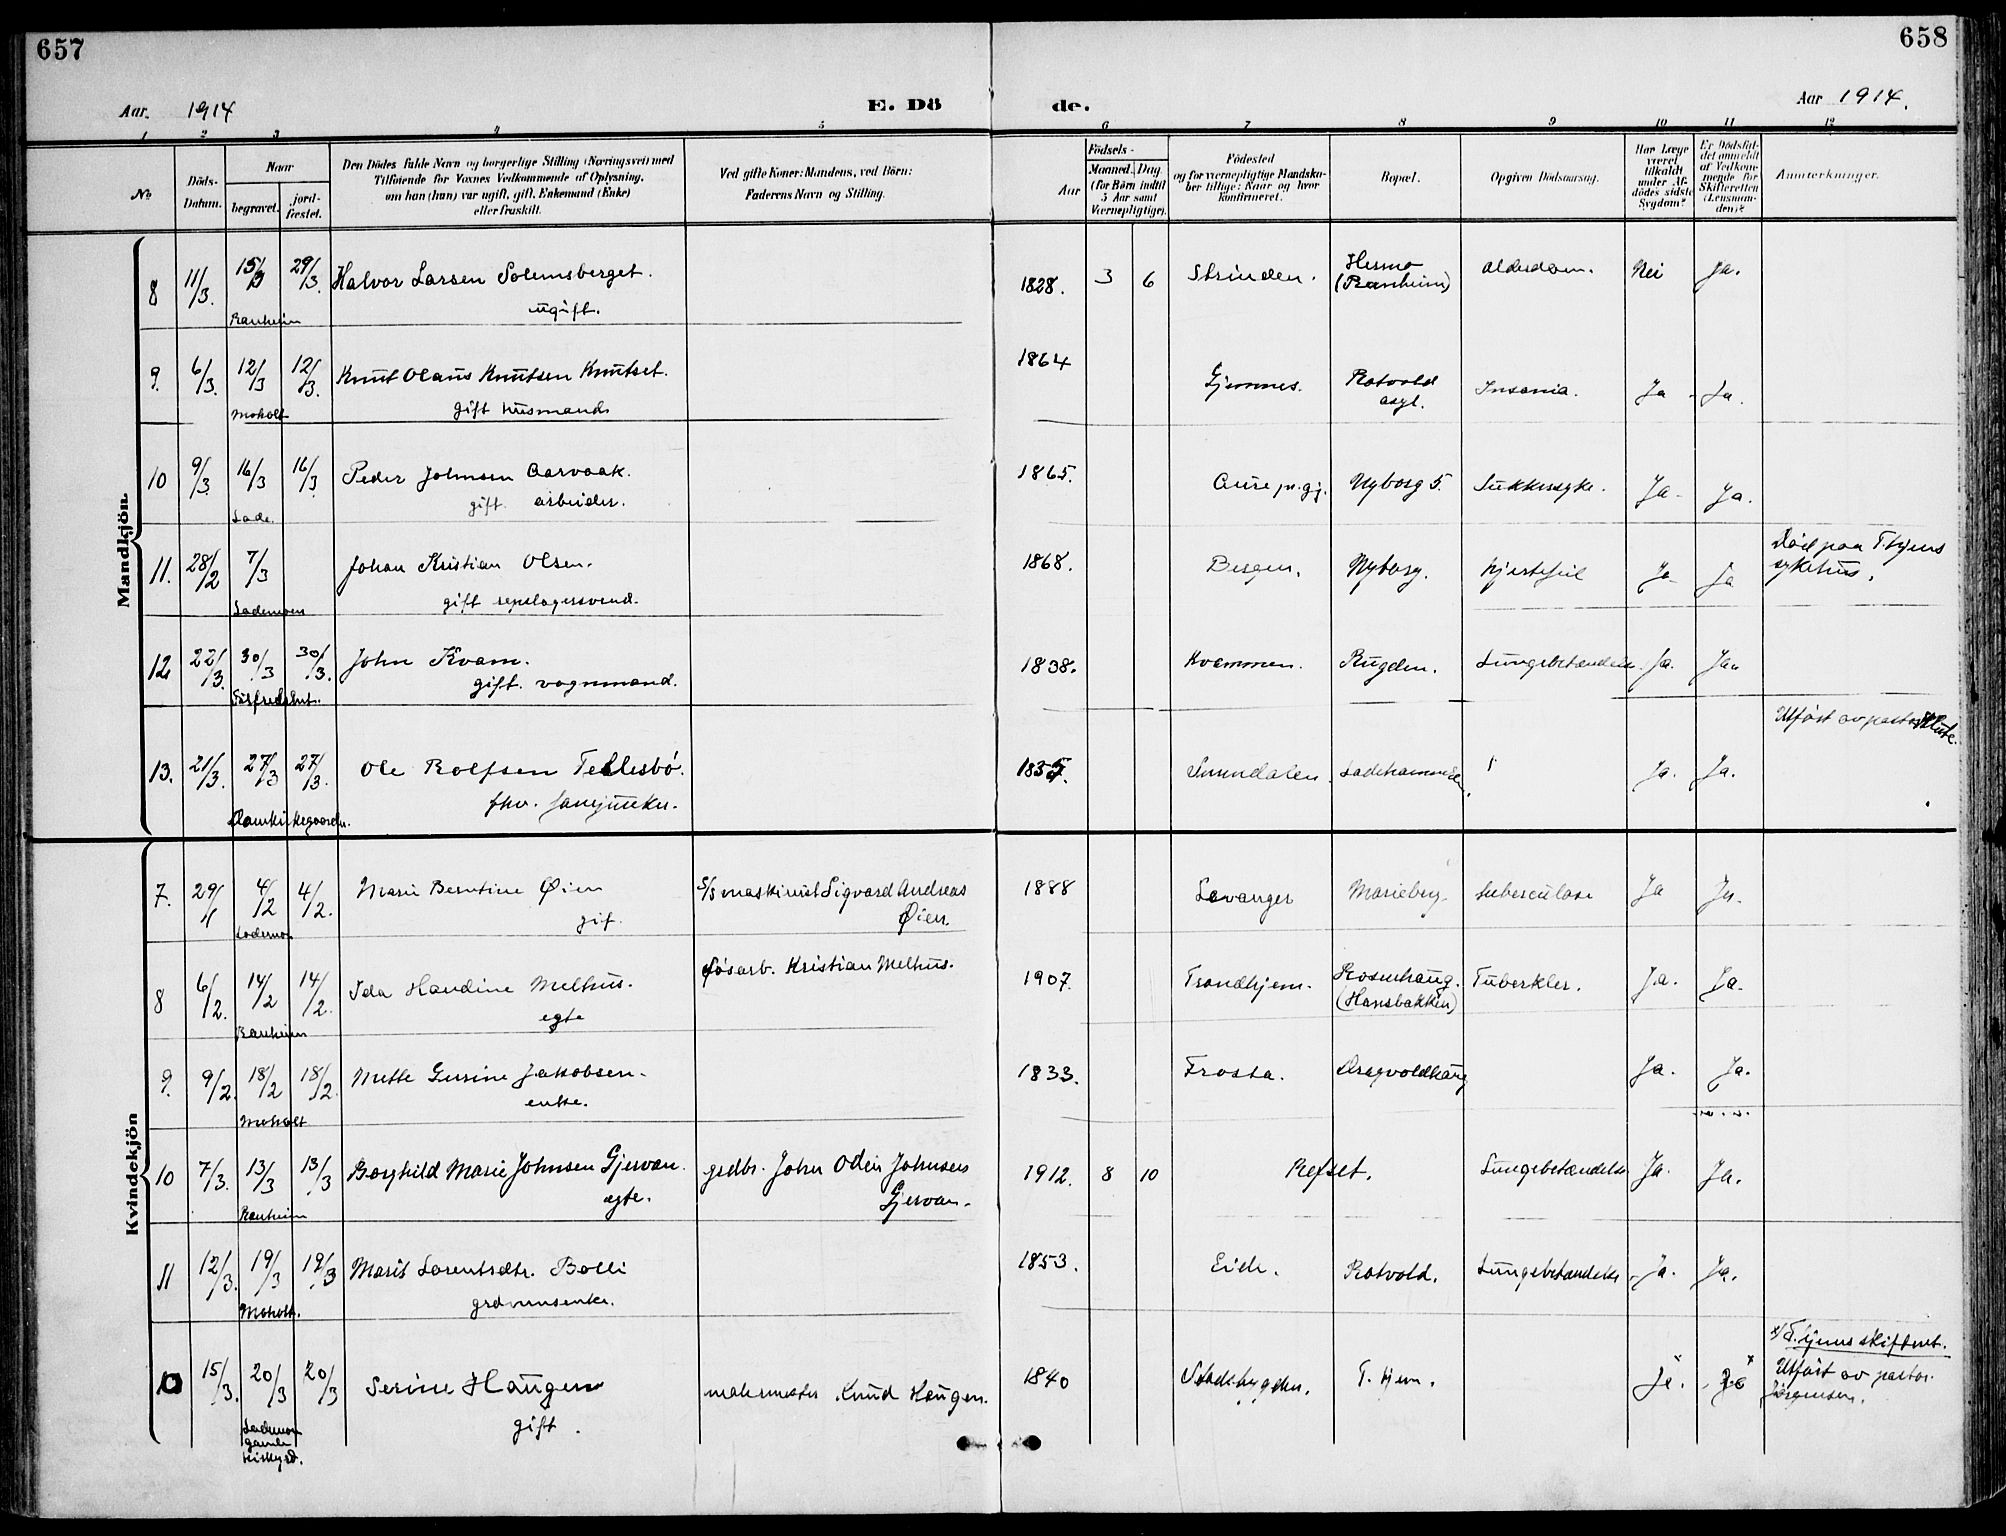 657
658
Aar. 1914
E. Dö
de.
Aar 1914.
1 2 3 4 5 6 7 8 9 10 11 12
No
Döds-
Datum.
Naar
begravet.
jord-
fæstet.
Den Dödes fulde Navn og borgerlige Stilling (Næringsvei) med
Tilföiende for Voxnes Vedkommende af Oplysning,
om han (hun) var ugift, gift, Enkemand (Enke)
eller fraskilt.
Ved gifte Koner: Mandens, ved Börn:
Faderens Navn og Stilling.
Födsels-
Aar
Maaned. Dag.
(for Börn indtil
5 Aar samt
Værnepligtige).
Födested
og for værnepligtige Mandska-
ber tillige: Naar og hvor
konfirmeret.
Bopæl.
Opgiven Dödsaarsag.
Har Læge
været
tilkaldt
under Af-
dödes sidste
Sygdom?
Er Dödsfal-
det anmeldt
af Vedkom-
mende for
Skifteretten
(Lensman-
den)?
Anmerkninger.
Mandkjön.
8 11/3. 15/3 29/3. Halvor Larsen Solemsberget. 1828. 3 6 Strinden. Hesmo (Ranheim) Alderdom. Nei Ja.
Ranheim ugift.
9. 6/3. 12/3 12/3. Knut Olaus Knutsen Knutset. 1864 Gjemnes. Rotvold asyl. Insania. Ja - Ja.
Moholt gift husmand
10 9/3. 16/3 16/3 Peder Johnsen Aarvaak. 1865. Aure pr. gj. Nyborg 5. Sukkersyke. Ja - Ja.
Lade. gift. arbeider.
11. 28/2 7/3 Johan Kristian Olsen. 1868. Bergen. Nyborg. hjertefeil Ja - Ja Död paa T.hjems sykehus.
Lademoen gift repslagersvend.
12 22/3. 30/3 30/3. John Kvam. 1838. Kvammen. Rugden. Lungebetændelse. Ja. Ja.
gift. vognmand.
13. 21/3. 27/3 27/3. Ole Rolfsen Tellesbö. Sunndalen. Ladehammeren. Ja. Ja. Utfört av pastor Klüte.
Domkirkegaarden. fhv.
Kvindekjön
7. 29/1 4/2 4/2. Marie Berntine Øien 5/5 maskinist Sigvard Andreas Øien. 1888 Levanger Marieberg. tuberculose Ja Ja.
Lademo. gif.
8 6/2. 14/2 14/2. Ida Haudine Melhus. løsarb. Kristian Melhus. 1907. Trondhjem. Rosenhaug. (Hansbakken) Tuberkler. Ja. Ja.
Ranheim egte
9. 9/2. 18/2 18/2. Mette Gurine Jakobsen. 1833. Frosta. Dragvoldhaug Ja. Ja.
Moholt enke.
10 7/3. 13/3 13/3 Borghild Marie Johnsen Gjervan. grdbr. John Odin Johnsen Gjervan. 1912. 8 10 Refset. Lungebetændelse Ja. Ja.
Ranheim egte.
11 12/3. 19/3 19/3 Marit Lorentsdtr. Bolli 1853. Eide. Rotvold. Lungebetændelse Ja. Ja.
Moholt. grdmandsenke.
15/3. 20/3 20/3 Serine Haugen malermester Knud Haugen. 1840 Stadsbygden. T. hjem. Ja. x/ T.hjems skifteret. Utfört av pastor. Jörgensen.
Lademo gamle kirkegrd. gift.